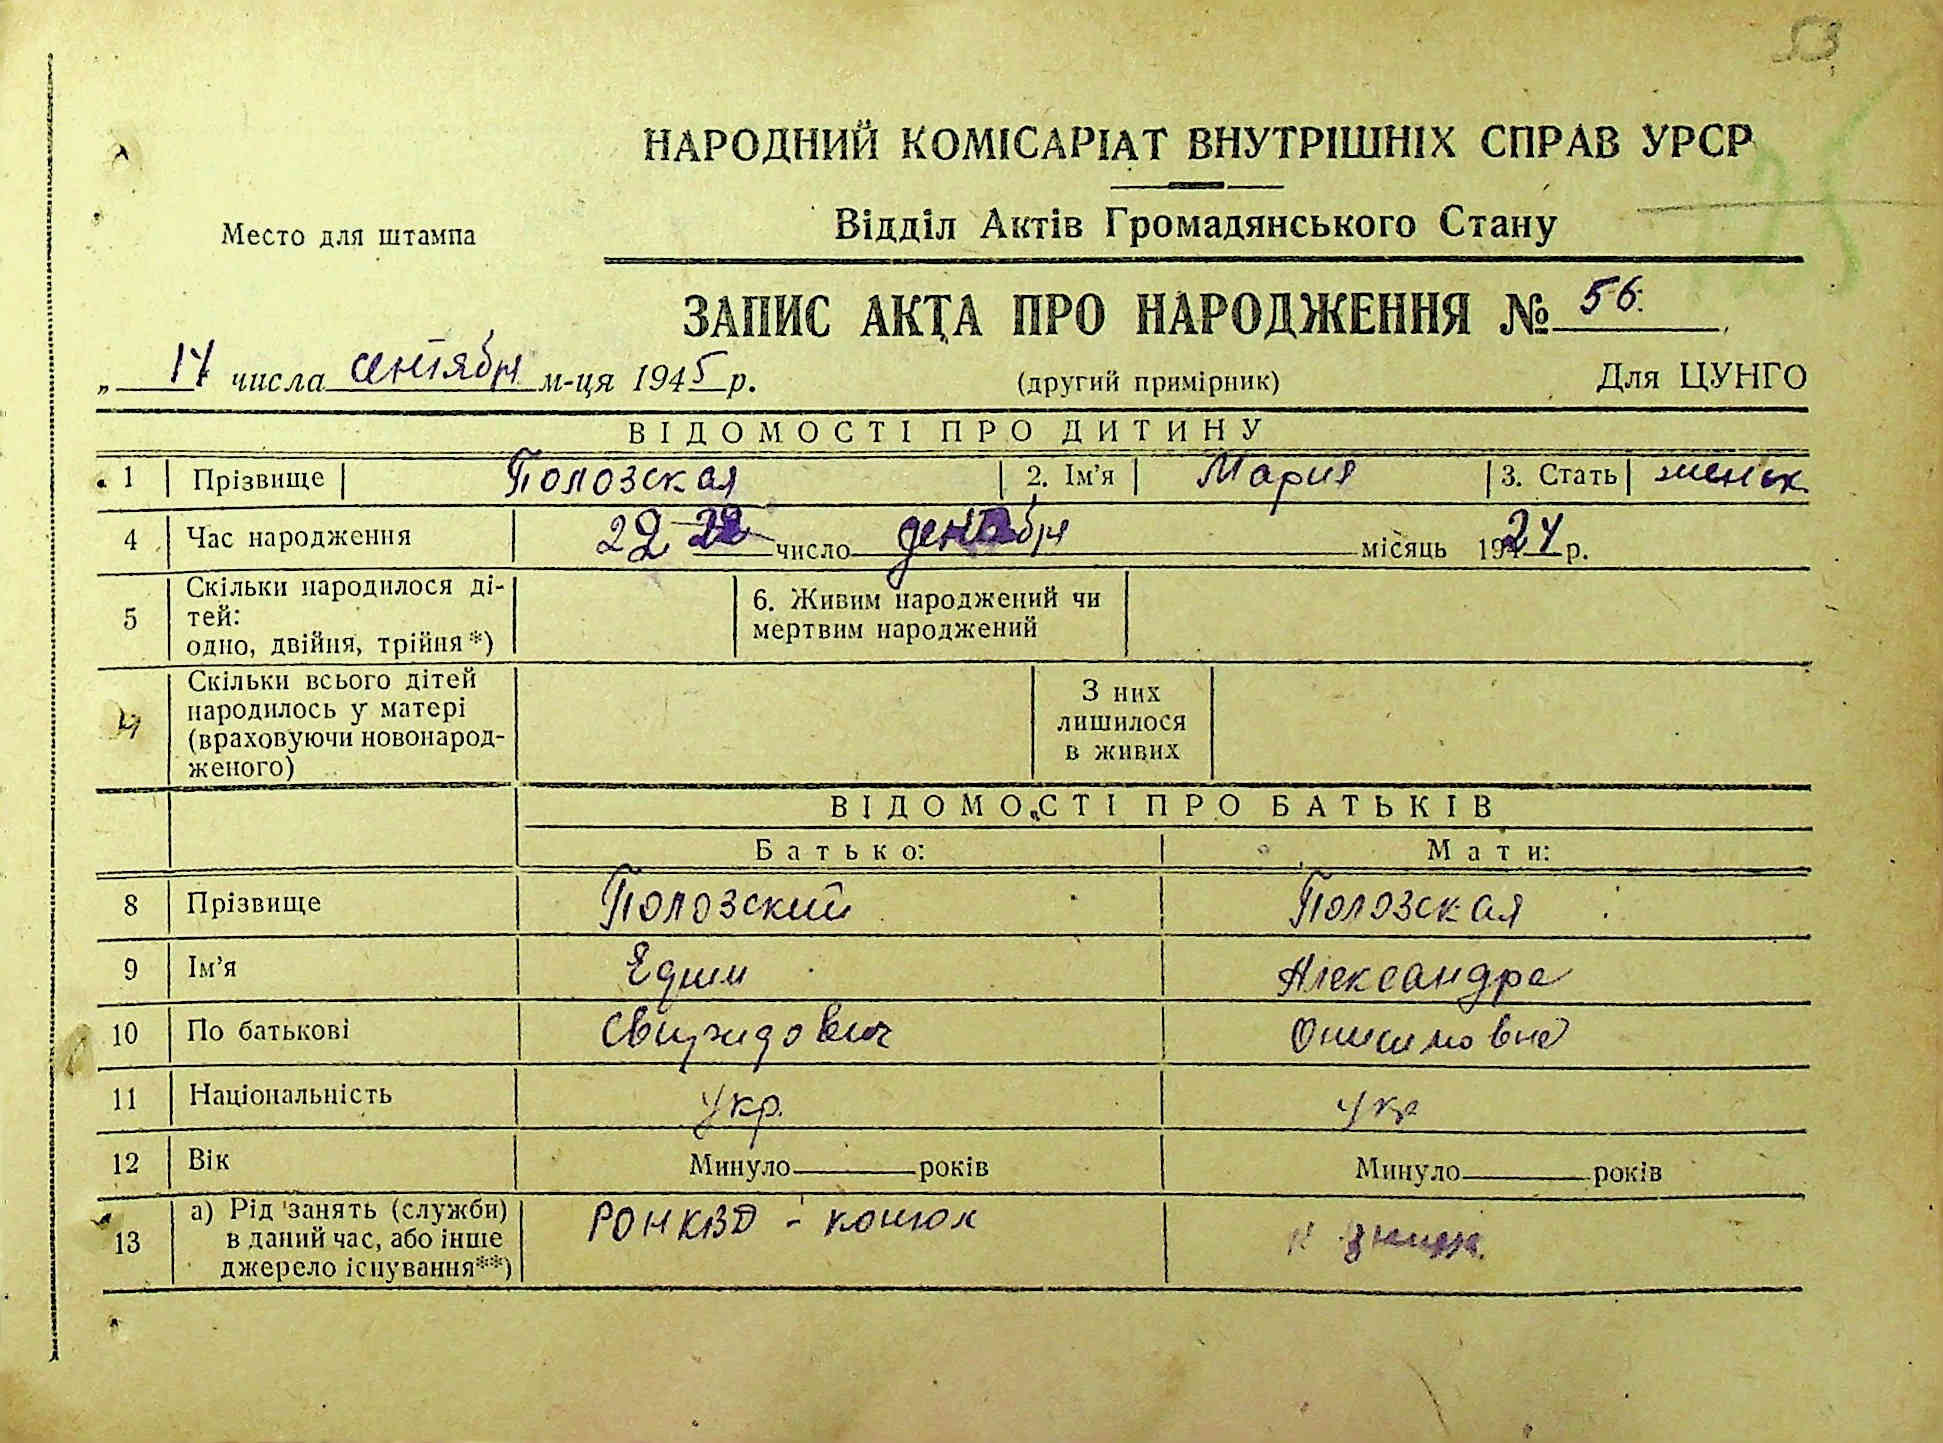 53
НАРОДНИЙ КОМІСАРІАТ ВНУТРІШНІХ СПРАВ УРСР
Место для штампа
Відділ Актів Громадянського Стану
ЗАПИС АКТА ПРО НАРОДЖЕННЯ № 56.
„ 14 числа сентября м-ця 1945 р. (другий примірник) Для ЦУНГО
ВІДОМОСТІ ПРО ДИТИНУ
1 Прізвище Полозская 2. Ім'я Мария 3. Стать женск
4 Час народження 22 22 число декабря місяць 1924 р.
5 Скільки народилося ді-
тей:
одно, двійня, трійня*)
6. Живим народжений чи
мертвим народжений
Скільки всього дітей
народилось у матері
(враховуючи новонарод-
женого)
З них
лишилося
в живих
ВІДОМОСТІ ПРО БАТЬКІВ
Батько: Мати:
8 Прізвище Полозский Полозская
9 Ім'я Александра
10 По батькові Свиридович Онисимовна
11 Національність укр. укр
12 Вік Минуло років Минуло років
13 а) Рід занять (служби)
в даний час, або інше
джерело існування**)
РОНКВД - конюх